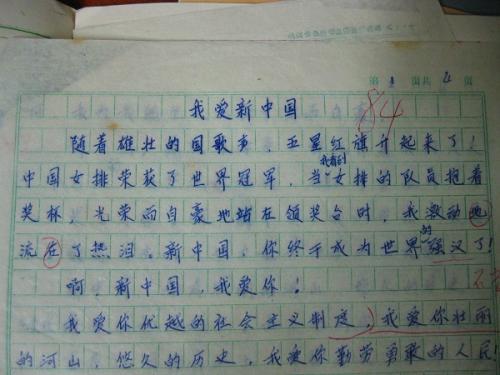 第1页共4页
我爱新中国
84
随着雄壮的国歌声，五星红旗升起来了！
中国女排荣获了世界冠军，当我看到女排的队员抱着
奖杯，光荣而自豪地站在领奖台时，我激动地
流在了热泪。新中国，你终于成为世界的强汉了！
啊，新中国，我爱你！
我爱你优越的社会主义制度，我爱你壮丽
的河山，悠久的历史，我爱你勤劳勇敢的人民！